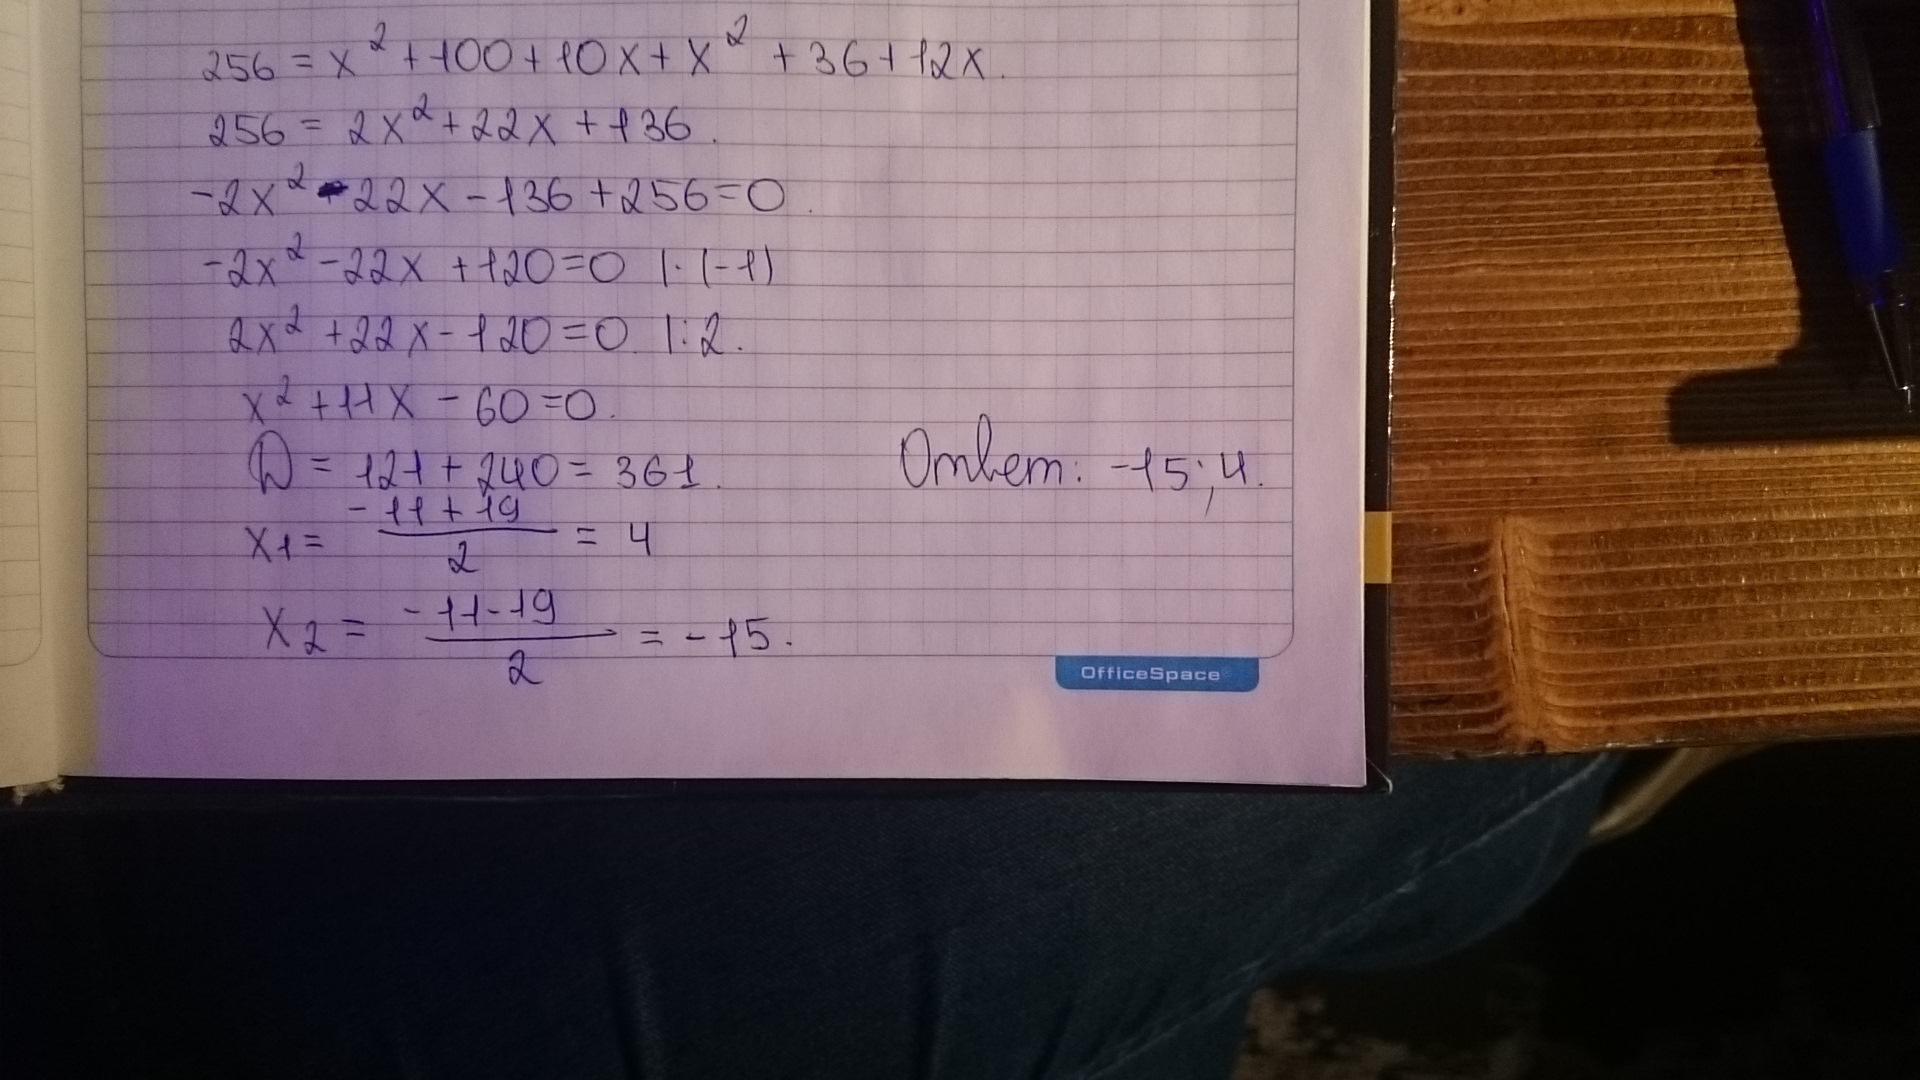 256 = x² + 100 + 10x + x² + 36 + 12x.
256 = 2x² + 22x + 136.
-2x² - 22x - 136 + 256 = 0.
-2x² - 22x + 120 = 0 |·(-1)
2x² + 22x - 120 = 0 |:2.
x² + 11x - 60 = 0.
D = 121 + 240 = 361.
x1 = (-11+19)/2 = 4
x2 = (-11-19)/2 = -15.
Ответ: -15; 4.
OfficeSpace